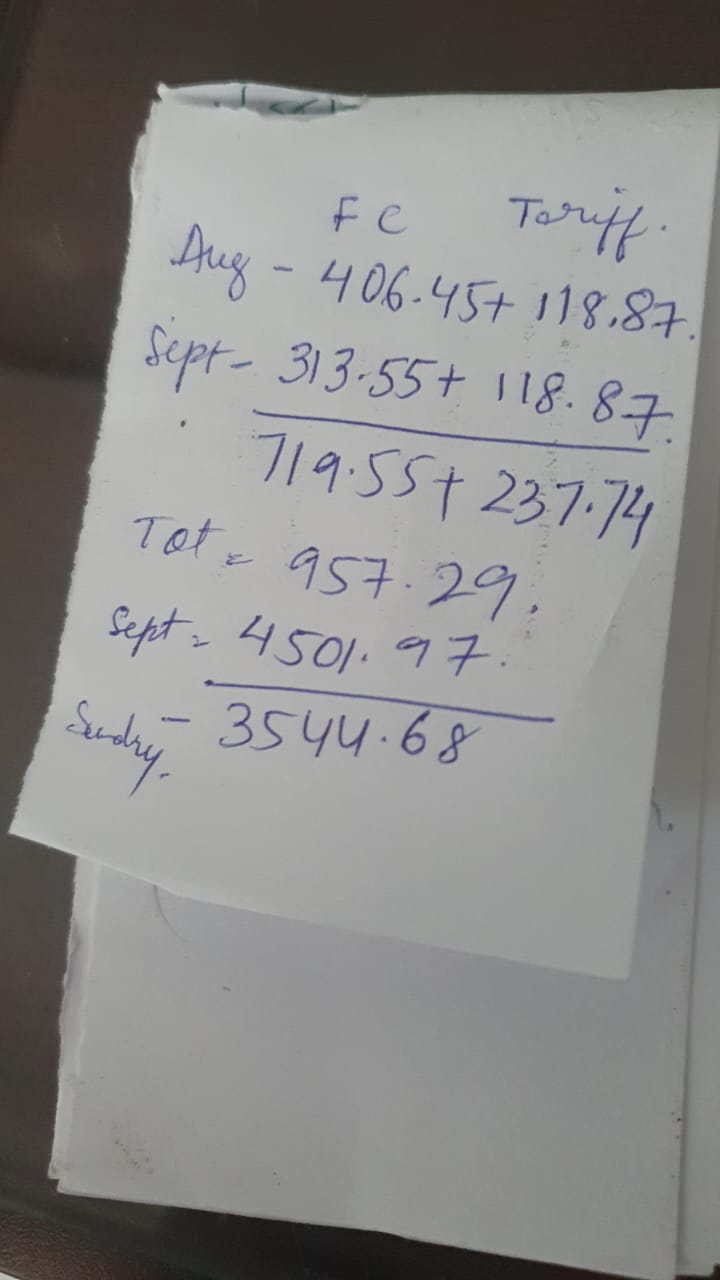 FC Tariff.
Aug - 406.45+ 118.87.
Sept - 313.55+ 118.87.
719.55+ 237.74
Tot = 957.29.
Sept = 4501.97.
Sundry. - 3544.68